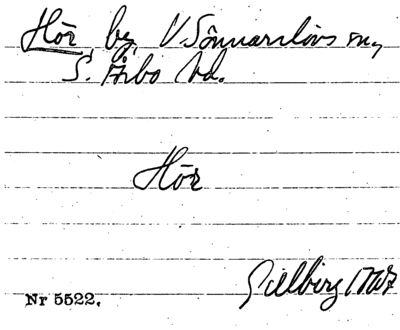 Hör, by, V. Sönnarslövs sn,
S. Åsbo hd.
Hör
Gillberg 1767
Nr 5522.